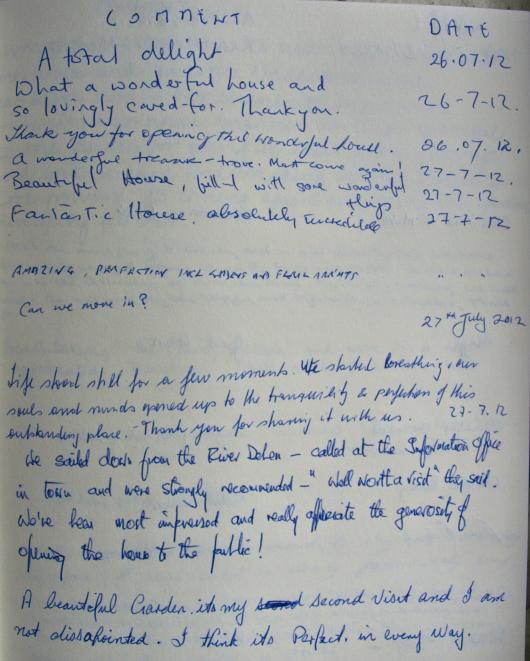 COMMENT DATE
A total delight 26.07.12
What a wonderful house and
so lovingly cared-for. Thankyou. 26-7-12.
Thank you for opening this wonderful house. 26.07.12.
A wonderful treasure-trove. Must come again! 27-7-12.
Beautiful House, filled with some wonderful
things 27-7-12
Fantastic House. absolutely Incredible 27-7-12
AMAZING, PERFECTION INCL GARDENS AND " " "
Can we move in?
27th July 2012
Life stood still for a few moments. We started breathing, our
souls and minds opened up to the tranquility & perfection of this
outstanding place. - Thank you for sharing it with us. 27-7.12
We sailed down from the River Deben - called at the Information Office
in town and were strongly recommended - "Well worth a visit" they said.
We've been most impressed and really appreciate the generosity of
opening the house to the public!
A beautiful Garden. its my second visit and I am
not dissapointed. I think its Perfect. in every way.